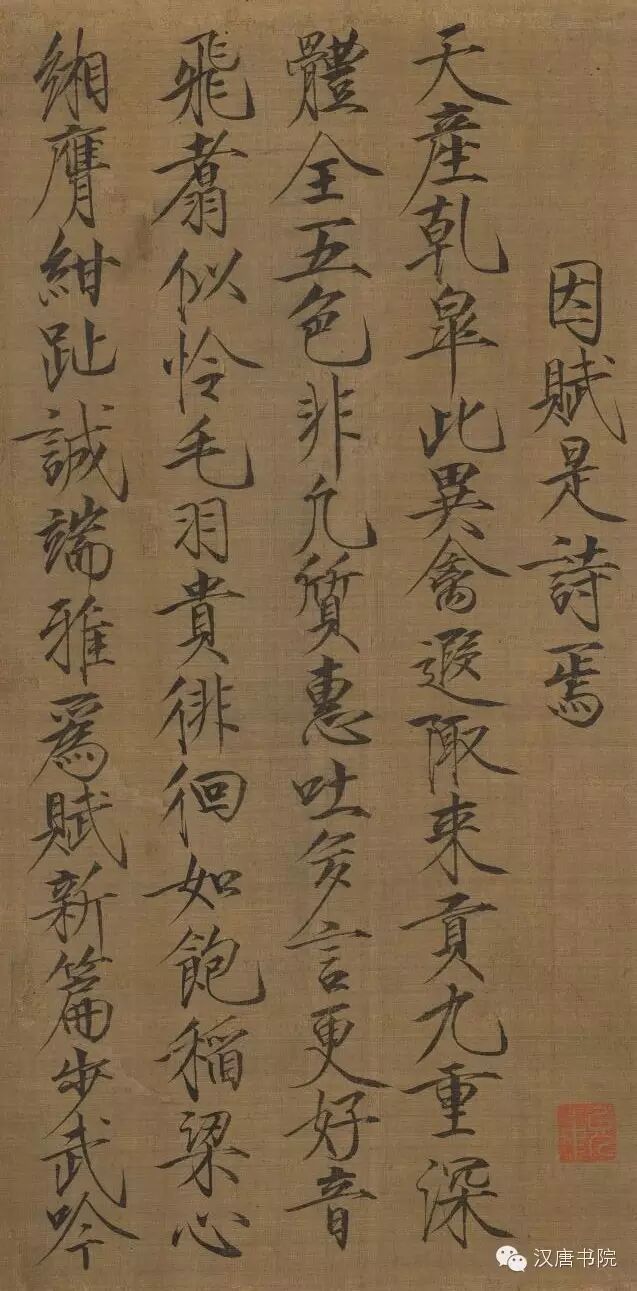 因賦是詩焉
天産乹皐此異禽遐陬来貢九重深
體全五色非凡質惠吐多言更好音
飛翥似怜毛羽貴徘徊如飽稻粱心
緗膺紺趾誠端雅爲賦新篇步武吟
汉唐书院